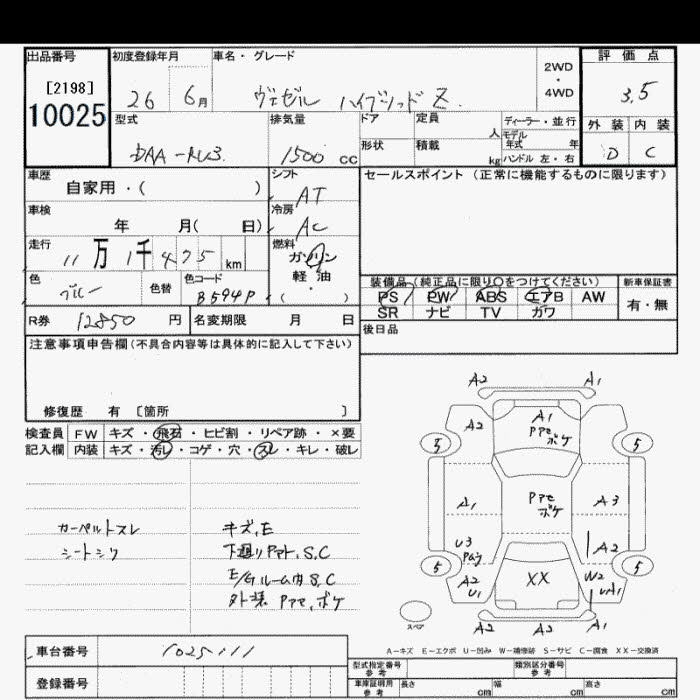 出品番号
[2198]
10025
初度登録年月
26 6月
車名・グレード
ヴェゼル ハイブリッド Z
2WD
・
4WD
評価点
3.5
外装 内装
D C
型式
DAA-RU3
排気量
1500 cc
ドア
定員
人
形状
積載
kg
ディーラー・並行
モデル年式 年
ハンドル 左・右
車歴
自家用・( )
シフト
AT
セールスポイント(正常に機能するものに限ります)
車検
年 月( 日)
冷房
AC
走行
11万1千475 km
燃料
ガソリン
軽油
( ・ )
色
ブルー
色替
色コード
B594P
装備品(純正品に限り○をつけてください)
PS PW ABS エアB AW
SR ナビ TV カワ
新車保証書
有・無
R券 12850 円
名変期限 月 日
後日品
注意事項申告欄(不具合内容等は具体的に記入して下さい)
修復歴 有 〔箇所 〕
検査員記入欄
FW キズ・飛石・ヒビ割・リペア跡・×要
内装 キズ・汚レ・コゲ・穴・スレ・キレ・破レ
カーペットスレ
シートシワ
キズ,E
下廻りサビ,S,C
E/Gルーム内S,C
外装 ,ボケ
A2 A1
A2 A1
ボケ
5 5
A1 ボケ A3
U3 A2
5 5
A2 XX W2
U1 UA1
スペア
A2 A2 A1
A-キズ E-エクボ U-凹み W-補修跡 S-サビ C-腐食 XX-交換済
車台番号 1025111
登録番号
型式指定番号
参考
類別区分番号
参考
車庫証明用
参考
長さ cm 幅 cm 高さ cm